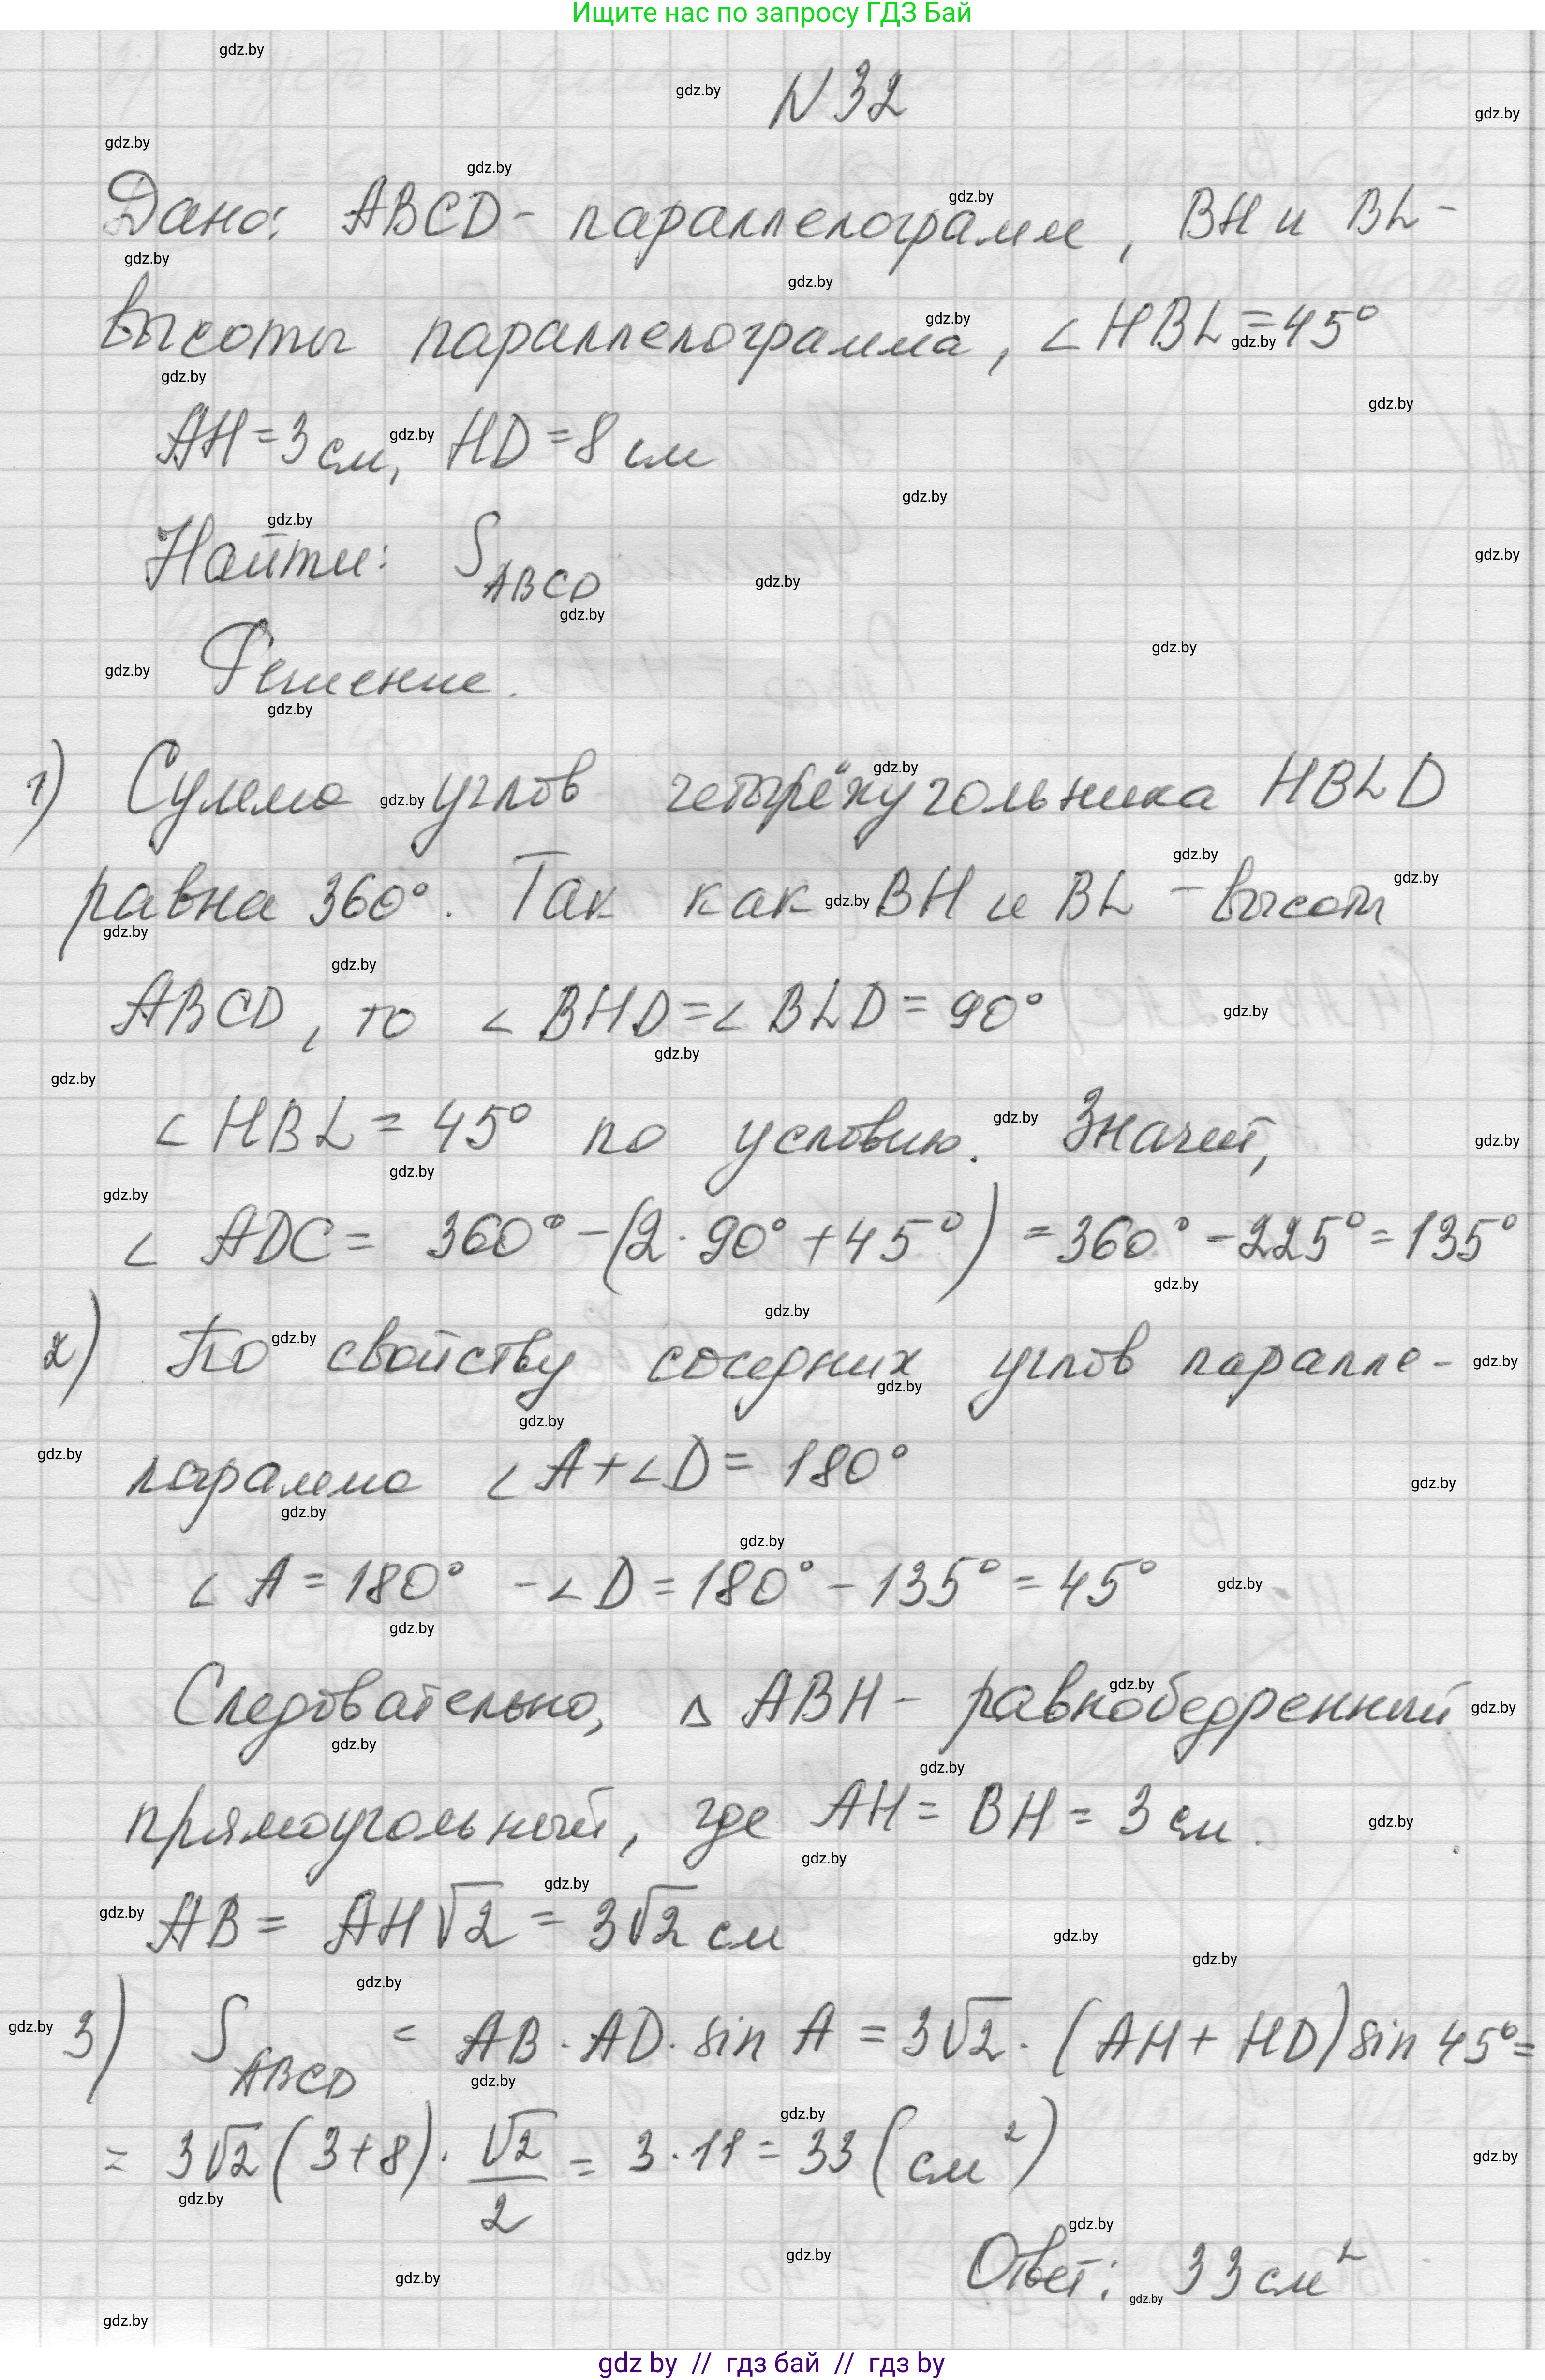 Ищите нас по запросу ГДЗ Бай
N 32
Дано: ABCD - параллелограмм, BH и BL -
высоты параллелограмма, ∠HBL = 45°
AH = 3 см, HD = 8 см
Найти: S_ABCD
Решение.
1) Сумма углов четырёхугольника HBLD
равна 360°. Так как BH и BL - высоты
ABCD, то ∠BHD = ∠BLD = 90°
∠HBL = 45° по условию. Значит,
∠ADC = 360° - (2 · 90° + 45°) = 360° - 225° = 135°
2) По свойству соседних углов паралле-
лограмма ∠A + ∠D = 180°
∠A = 180° - ∠D = 180° - 135° = 45°
Следовательно, △ABH - равнобедренный
прямоугольный, где AH = BH = 3 см.
AB = AH√2 = 3√2 см
3) S_ABCD = AB · AD · sin A = 3√2 · (AH + HD) sin 45° =
= 3√2 (3 + 8) · √2/2 = 3 · 11 = 33 (см²)
Ответ: 33 см²
gdz by // гдз бай // гдз by